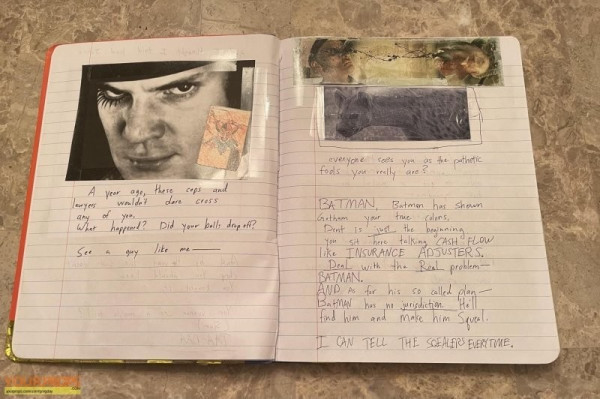 A year ago, these cops and
lawyers wouldn't dare cross
any of you.
What happened? Did your balls drop off?
See a guy like me—
everyone sees you as the pathetic
fools you really are?
BATMAN. Batman has shown
Gotham your true colors.
Dent is just the beginning
you sit here talking CASH FLOW
like INSURANCE ADJUSTERS.
Deal with the Real problem—
BATMAN.
AND as for his so called plan—
Batman has no jurisdiction. He'll
find him and make him Squeal.
I CAN TELL THE SQEALERS EVERYTIME.